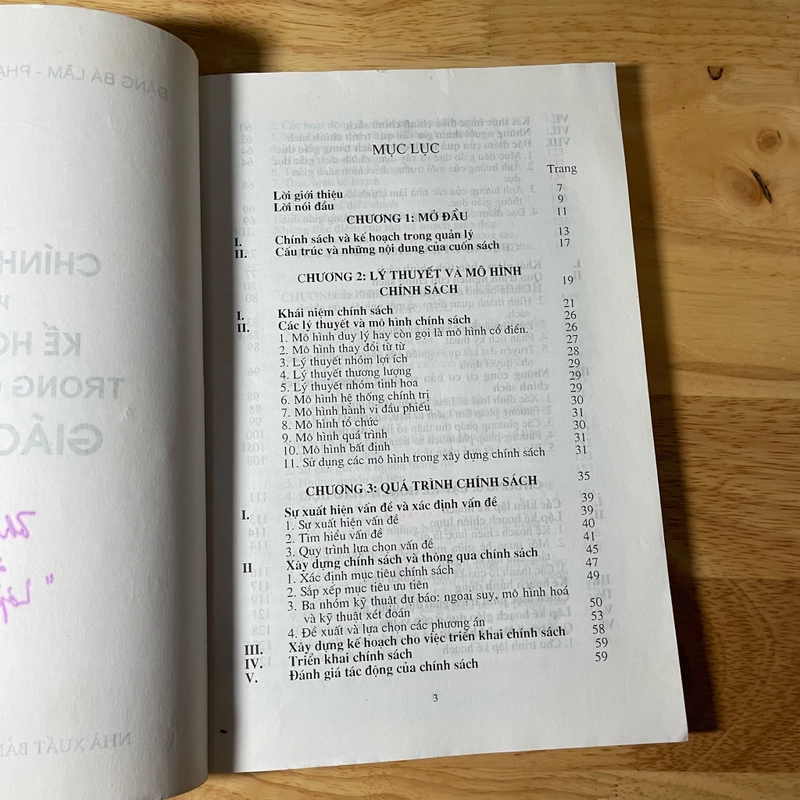 ĐẶNG BÁ LÃM - PHẠ
CHÍNH
V
KẾ HO
TRONG
GIÁO
NHÀ XUẤT BẢN
MỤC LỤC
Trang
Lời giới thiệu 7
Lời nói đầu 9
CHƯƠNG 1: MỞ ĐẦU 11
I. Chính sách và kế hoạch trong quản lý 13
II. Cấu trúc và những nội dung của cuốn sách 17
CHƯƠNG 2: LÝ THUYẾT VÀ MÔ HÌNH
CHÍNH SÁCH 19
I. Khái niệm chính sách 21
II. Các lý thuyết và mô hình chính sách 26
1. Mô hình duy lý hay còn gọi là mô hình cổ điển. 26
2. Mô hình thay đổi từ từ 27
3. Lý thuyết nhóm lợi ích 28
4. Lý thuyết thương lượng 29
5. Lý thuyết nhóm tinh hoa 29
6. Mô hình hệ thống chính trị 29
7. Mô hình hành vi đầu phiếu 30
8. Mô hình tổ chức 31
9. Mô hình quá trình 30
10. Mô hình bất định 31
11. Sử dụng các mô hình trong xây dựng chính sách 31
CHƯƠNG 3: QUÁ TRÌNH CHÍNH SÁCH 35
I. Sự xuất hiện vấn đề và xác định vấn đề 39
1. Sự xuất hiện vấn đề 39
2. Tìm hiểu vấn đề 40
3. Quy trình lựa chọn vấn đề 41
II Xây dựng chính sách và thông qua chính sách 45
1. Xác định mục tiêu chính sách 47
2. Sắp xếp mục tiêu ưu tiên 49
3. Ba nhóm kỹ thuật dự báo: ngoại suy, mô hình hoá
và kỹ thuật xét đoán 50
4. Đề xuất và lựa chọn các phương án 53
III. Xây dựng kế hoạch cho việc triển khai chính sách 58
IV. Triển khai chính sách 59
V. Đánh giá tác động của chính sách 59
3